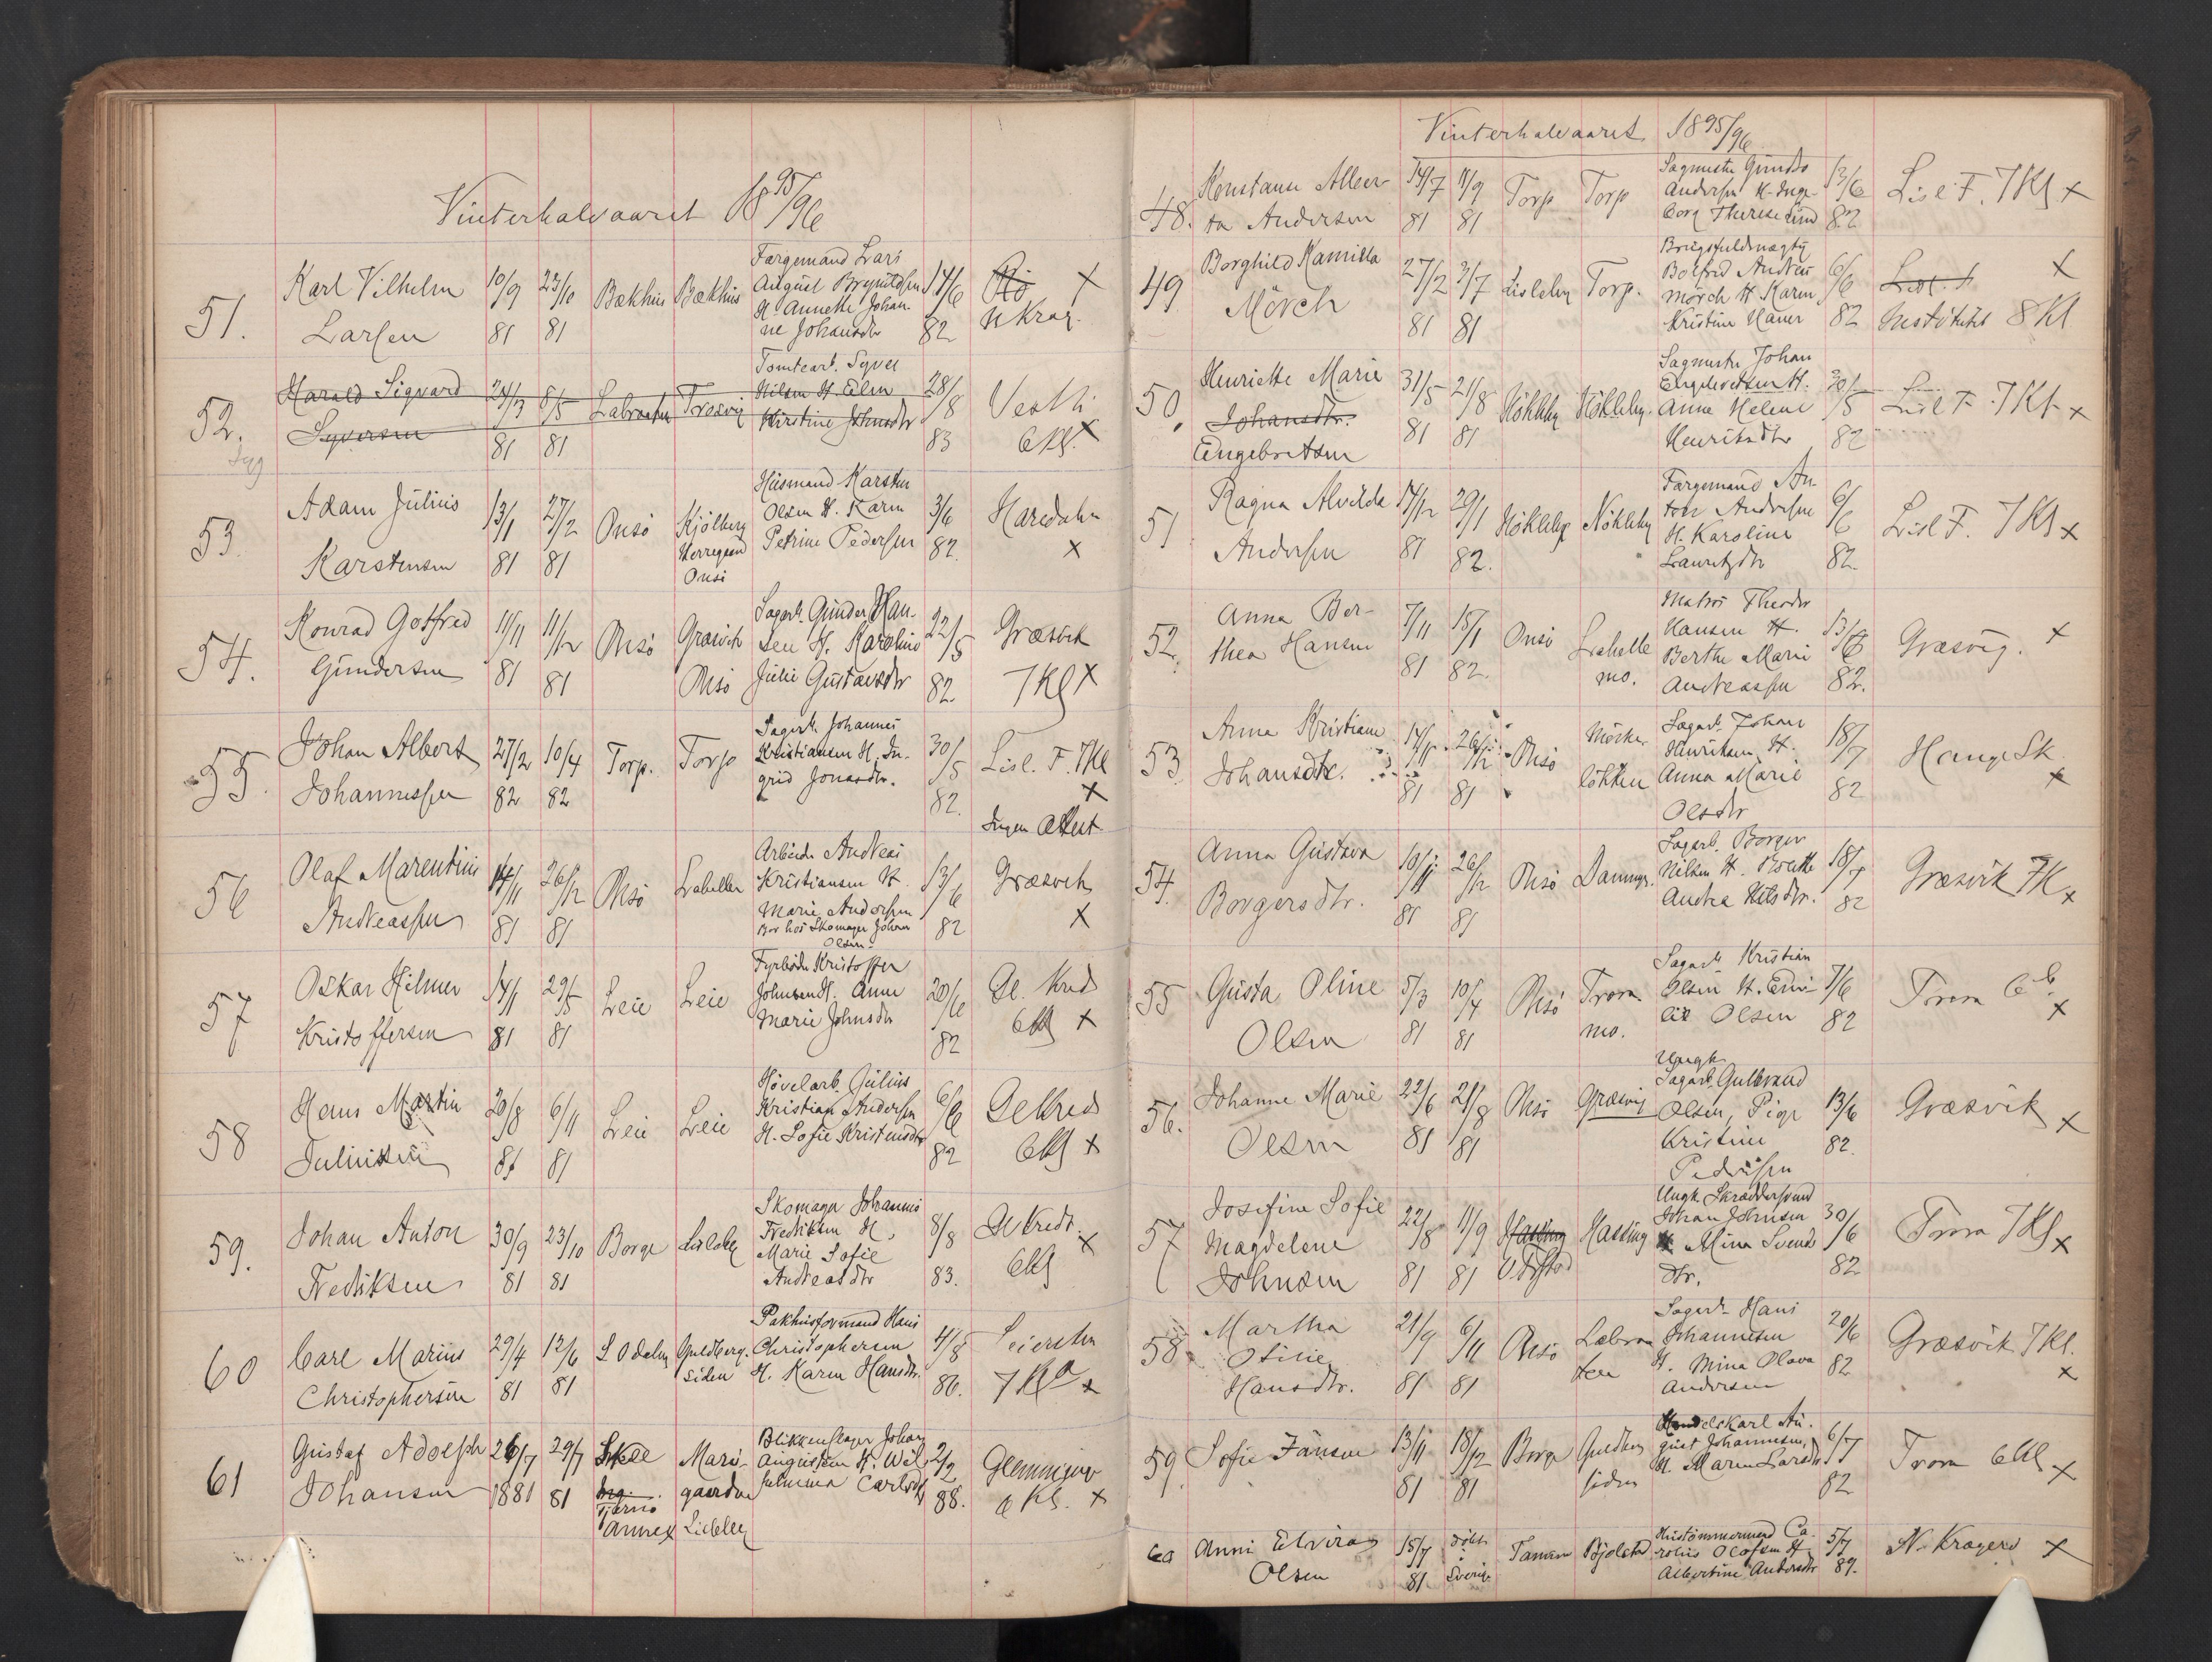 Vinterhalvaaret 1895/96
51. Karl Vilhelm Larsen 10/9 81 23/10 81 Bækhus Bækhus
Færgemand Lars
August Bryn
H. Annette Johan-
ne Johansdtr
14/6 82 Rö X
N Krag.
52. Harald Sigvard Syversen 24/3 81 8/5 81 Labraaten Trosvig
Tomtearb. Syver
Nilsen H. Elen
Kirstine Johnsdtr
28/8 83 Vestli
6 Kl. X
53. Adam Julius Karstensen 13/1 81 27/2 81 Onsö Kjölberg
Herregaard
Onsö
Husmand Karsten
Olsen H. Karen
Petrine Pedersen
3/6 82.
X
54. Konrad Gotfred Gundersen 11/11 81 11/12 81 Onsö Græsvik
Onsö
Sagarb. Gunder Han-
sen H. Karoline
Julie Gustavsdtr
22/5 82. Græsvik
7 Kl X
55. Johan Albert Johannessen 27/2 82 10/4 82 Torp. Torp
Sagarb. Johannes
Kristiansen H. In-
grid Jonasdtr.
30/5 82. Lisl. F. 7Kl
X
Ingen Attest
56 Olaf Marentius Andreassen 14/11 81 26/12 81 Onsö Labellen
Arbeider Andreas
Kristiansen H.
Marie Andersen
Bor hos Skomager Johan
Olsen
13/6 82 Græsvik
X
57 Oskar Hilmer Kristoffersen 14/1 81 29/5 81 Leie Leie
Fyrböder Kristoffer
Johnsen H. Anne
Marie Johnsdtr
20/6 82 Gl. Kred
6Kl X
58 Hans Martin Juliussen 20/8 81 6/11 81 Leie Leie
Hövelarb. Julius
Kristian Andersen
H. Sofie Kristensdtr
6/6 82 Gl Kred
6Kl X
59. Johan Anton Fredriksen 30/9 81 23/10 81 Borge Lisleby
Skomager Johannes
Fredriksen H,
Marie Sofie
Andreasdtr
8/8 83. Gl Kredr.
6Kl X
60 Carl Marius Christophersen 29/4 81 12/6 81 S Odalen Guldberg-
siden
Pakhusformand Hans
Christophersen
H. Karen Hansdtr.
4/8 86. Seiersten
7 Kl a X
61 Gustaf Adolph Johansen 26/7 1881 29/7 81
Tjernö
Annex
Marie-
gaarden
Lisleby
Blikkenslager Johan
Augustsen H. Wil-
helmina Carlsdtr
2/2 88. Glemminge
6 Kl. X
Vinterhalvaaret 1895/96
48. Konstanse Alber-
ta Andersen 14/7 81 11/9 81 Torp Torp
Sagmester Gunder
Andersen H. Inge-
borg Therese Lund
13/6 82 Lisl F. 7 Kl X
49 Borghild Kamilla
Mörch 27/2 81 3/7 81 Lisleby Torp.
Brugsfuldmægtig
Botfred Andreas
Mörch H. Karen
Kristine Hauer
6/6 82 Lisl. F X
Institutet 8 Kl
50. Henriette Marie
Johansdtr.
Engebretsen 31/5 81 21/8 81 Nökleby Nökleby.
Sagmester Johan
Engebretsen H.
Anne Helene
Henriksdtr
30/5 82 Lisl F. 7 Kl X
51 Ragna Alvilda
Andersen 14/12 81 29/1 82. Nökleby Nökleby
Færgemand An-
ton Andersen
H. Karoline
Lauritzdtr
6/6 82. Lisl F. 7 Kl X
52. Anna Ber-
thea Hansen 7/11 81 15/1 82. Onsö Labelle
mo.
Matros Theodor
Hansen H.
Berthe Marie
Andreassen
13/6 82. Græsvig. X
53 Anna Kristiane
Johansdtr. 14/11 81 26/12 81 Onsö Mörke-
lökken
Sagarb. Johan
Henriksen H.
Anna Marie
Olsdtr
18/7 82 Hauge Sk.
X
54. Anna Gustava
Borgersdtr. 10/11 81 26/12 81 Onsö Dammyr.
Sagarb. Borger
Nilsen H.
Andrea Nilsdtr.
18/7 82 Græsvik 7K X
55 Gusta Oline
Olsen 5/3 81 10/4 81 Onsö Trara
mo.
Sagarb Kristian
Olsen H. Emi-
lie Olsen
7/6 82 Trara 6 b X
56. Johanne Marie
Olsen 22/6 81 21/8 81 Onsö Græsvig
Ungk.
Sagarb. Gulbrand
Olsen, Pige
Kristine
Pedersen
13/6 82. Græsvik X
57 Josefine Sofie
Magdelene
Johnsen 22/8 81 11/9 81 Hassing Hassing
Ungk. Skræddersvend
Johan Johnsen
Mina Svends
dtr.
30/6 82 Trara 7 Kl X
58. Martha
Otilie
Hansdtr. 21/9 81 6/11 81 Onsö Labraa
ten
Sagarb. Hans
Johannesen
H. Mina Olava
Andersen
20/6 82 Græsvik 7 Kl.
X
59. Sofie Jansen 13/11 81 18/12 81 Borge Guldberg
siden
Handelskarl Au-
gust Johannesen,
H. Maren Larsdtr
6/7 82 Trara 6Kl X
60 Anni Elvira
Olsen 15/7 81 Födt i Sverige Bjölstad
Hustömmermand Ca-
rolus Olofsen H.
Albertine Andersdtr
5/7 89. N. Kragerö X